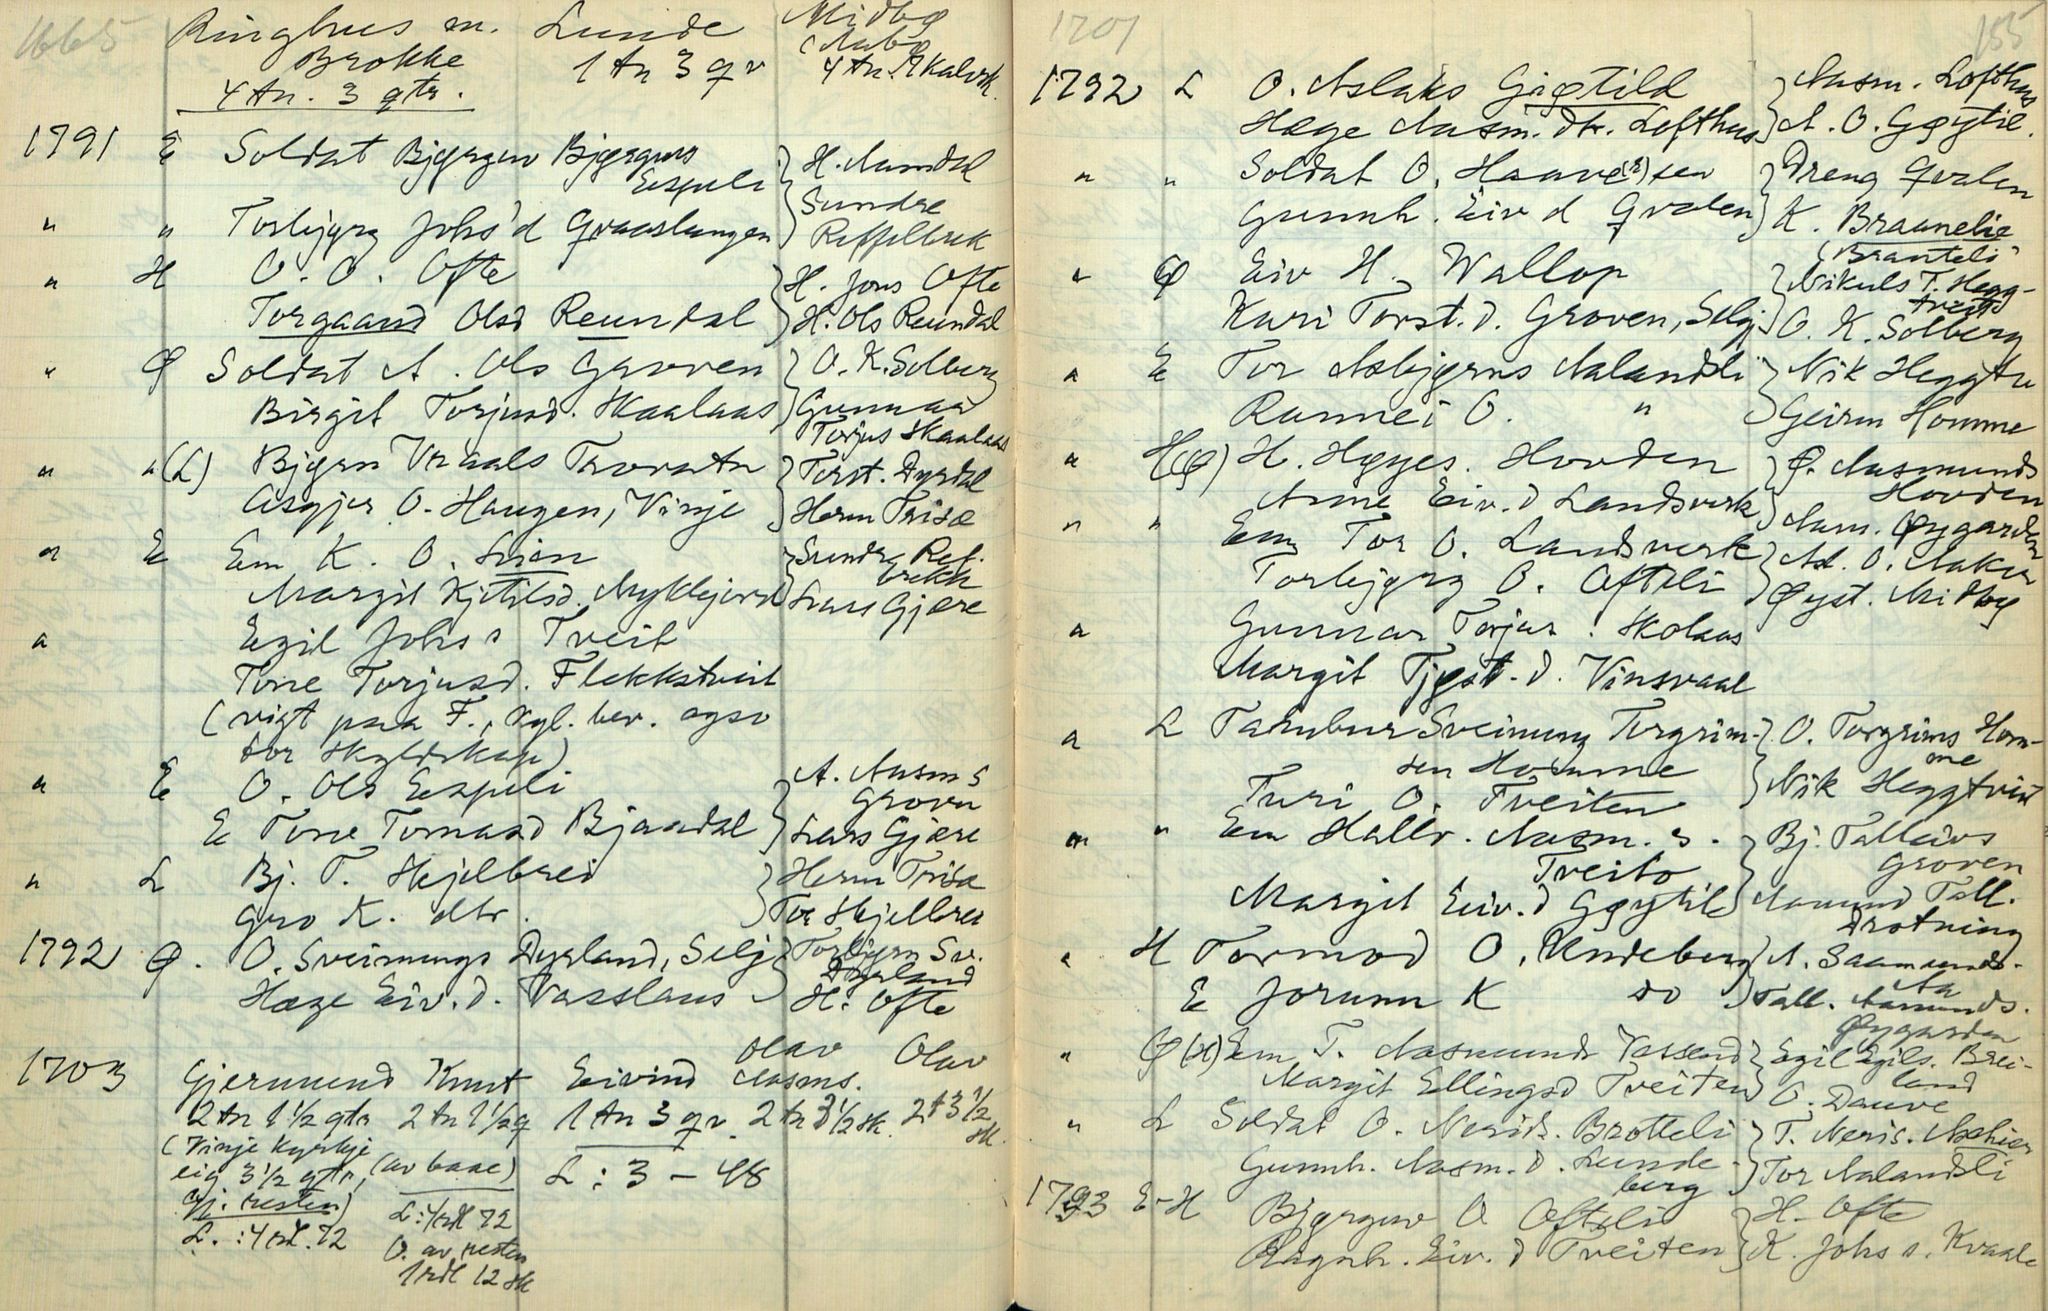 1665 Ringhus m. Lunde Midbø
Brokke 1 tn 3 qr
4 tn. 3 qtr.
1791 E Soldat Bjørguv Bjørguvs H. Aamdal
Espeli Sundre
" " Torbjørg Johs'd Graaslungen
" H O. O. Ofte H. Jons Ofte
Torgaard Olsd Reundal H. Ols Reundal
" Ø Soldat A. Ols Groven O. K. Solberg
Birgit Torjusd. Skaalaas Gunnar
Torjus Skaalaas
" "(L) Bjørn Vraals Torst. Dyrdal
Asgjer O. Haugen, Vinje Herm Trisæ
" E Em K. O. Sundre
Margit Kjetilsd. Lars Gjære
" Egil Johs s Tveit
Tone Torjusd. Flekkstveit
(vigt paa F., kgl. bev. ogso
for skyldskap)
" E O. Ols Espeli A. Aasm s
Grovn
E Tone Tomasd Bjaadal Lars Gjære
" L Bj. T. Hejlbrei Herm Trisæ
Gro K. dtr. Tor Skjelbrei
1792 Ø. O. Sveinungs Dyrland, Selj. Torbjørn Sv.
Dyrland
Hæge Eiv. d. Vasslaus H. Ofte
1703 Gjermund Knut Eivind Olav Aasms. Olav
2 tn 1 1/2 qtr 2 tn 1 1/2 q 1 tn 3 qr. 2 tn 3 1/2 sk. 2 t 3 1/2 sk.
(Vinje kyrkje
eig 3 1/2 qtr, (av baae) L: 3 - 48
Gj. resten)
L.: 4 rd. 72 L: 4 rdl 72
O. av resten
1 rdl 12 sk
1701 155
1792 L O. Aslaks Gjøtild Aasm. Lofthus
Hæge Aasm. dtr. Lofthus A. O. Gøytil.
" " Soldat O. Haave(r)sen Dreng Qvalen
Gunnh. Eiv d Qvalen K. Braanelie
(Brauteli)
" Ø Eiv H. Wallop Nikuls T. Hegg-
tveit
Kari Torst. d. Groven, Selj. O. K. Solberg
" E Tor Asbjørns Aalandsli Nik Heggtv
Rannei O. " Geirm Homme
" H(Ø) H. Høyes. Hovden Ø. Aasmunds
Hovden
Anne Eiv. d Landsverk Aam. Øygarden
" " Em Tor O. Landsverk Ad. O. Aaker
Torbjørg O. Ofteli Øyst. Midbø
" Gunnar Torjus. Skolaas
Margit Tjøst. d. Vinsvaal
" L Tambur Sveinung Torgrim- O. Torgrims Hom-
sen Homme me
Turi O. Tveiten Nik Heggtveit
" " Em Hallv. Aasm. s. Bj. Talleivs
Treito Groven
Margit Eiv. d Gøytil Aamund Tall.
Drotning
" H Tormod O. Undeberg A. Saamunds.
Aa
E Jorunn K do Tall. Aamunds.
Øygarden
" Ø(H) Em T. Aasmunds Vassend Egil Egils. Brei-
land
Margit Ellingsd Tveiten O. Dauve
" L Soldat O. Nerids. Brotteli T. Neris.
Gunnh. Aasm. d. Lunde- Tor Aalandsli
berg
1793 E-H Bjørguv O Ofteli H. Ofte
Ragnh. Eiv. d Tveiten K. Johs s. Kvaale